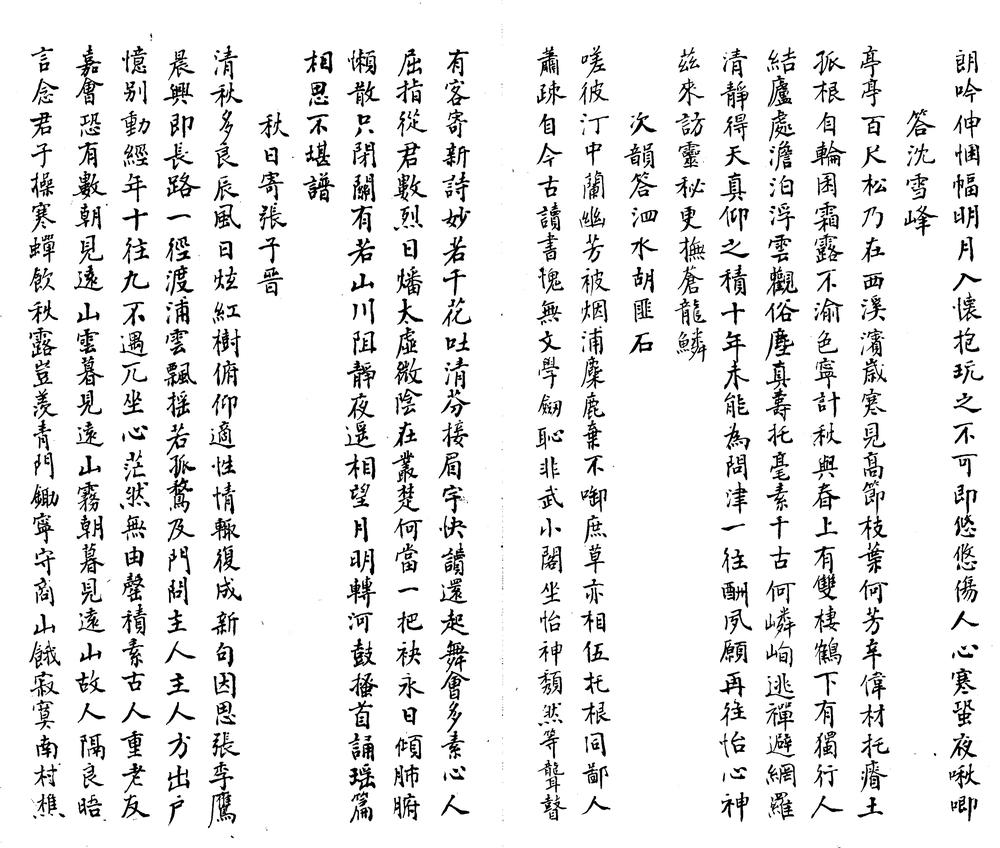 朗吟伸悃愊明月入懷抱玩之不可即悠悠傷人心寒蛩夜啾唧
答沈雪峰
亭亭百尺松乃在西溪濱嵗寒見高節枝葉何芳辛偉材托瘠土
孤根自輪囷霜露不渝色寧計秋與春上有雙棲鶴下有獨行人
結廬處澹泊浮雲觀俗塵真壽托毫素千古何嶙峋逃禪避網羅
清靜得天真仰之積十年未能為問津一往酬夙願再往怡心神
兹來訪靈秘更撫蒼龍鱗
次韻答泗水胡匪石
嗟彼汀中蘭幽芳被烟浦麋鹿棄不啣庶草亦相伍托根同鄙人
蕭疎自今古讀書愧無文學劒恥非武小閣坐怡神頽然等聾瞽
有客寄新詩妙若千花吐清芬接眉宇快讀還起舞會多素心人
屈指從君數烈日燔太虛微陰在叢楚何當一把袂永日傾肺腑
懶散只閉關有若山川阻靜夜遥相望月明轉河鼓搔首誦瑶篇
相思不堪譜
秋日寄張子晋
清秋多良辰風日炫紅樹俯仰適性情輒復成新句因思張季鷹
晨興即長路一徑渡浦雲飄摇若孤鶩及門問主人主人方出户
憶别動經年十往九不遇兀坐心茫然無由罄積素古人重老友
嘉會恐有數朝見遠山雲暮見遠山霧朝暮見遠山故人隔良晤
言念君子操寒蟬飲秋露豈羨青門鋤寧守商山餓寂寞南村樵